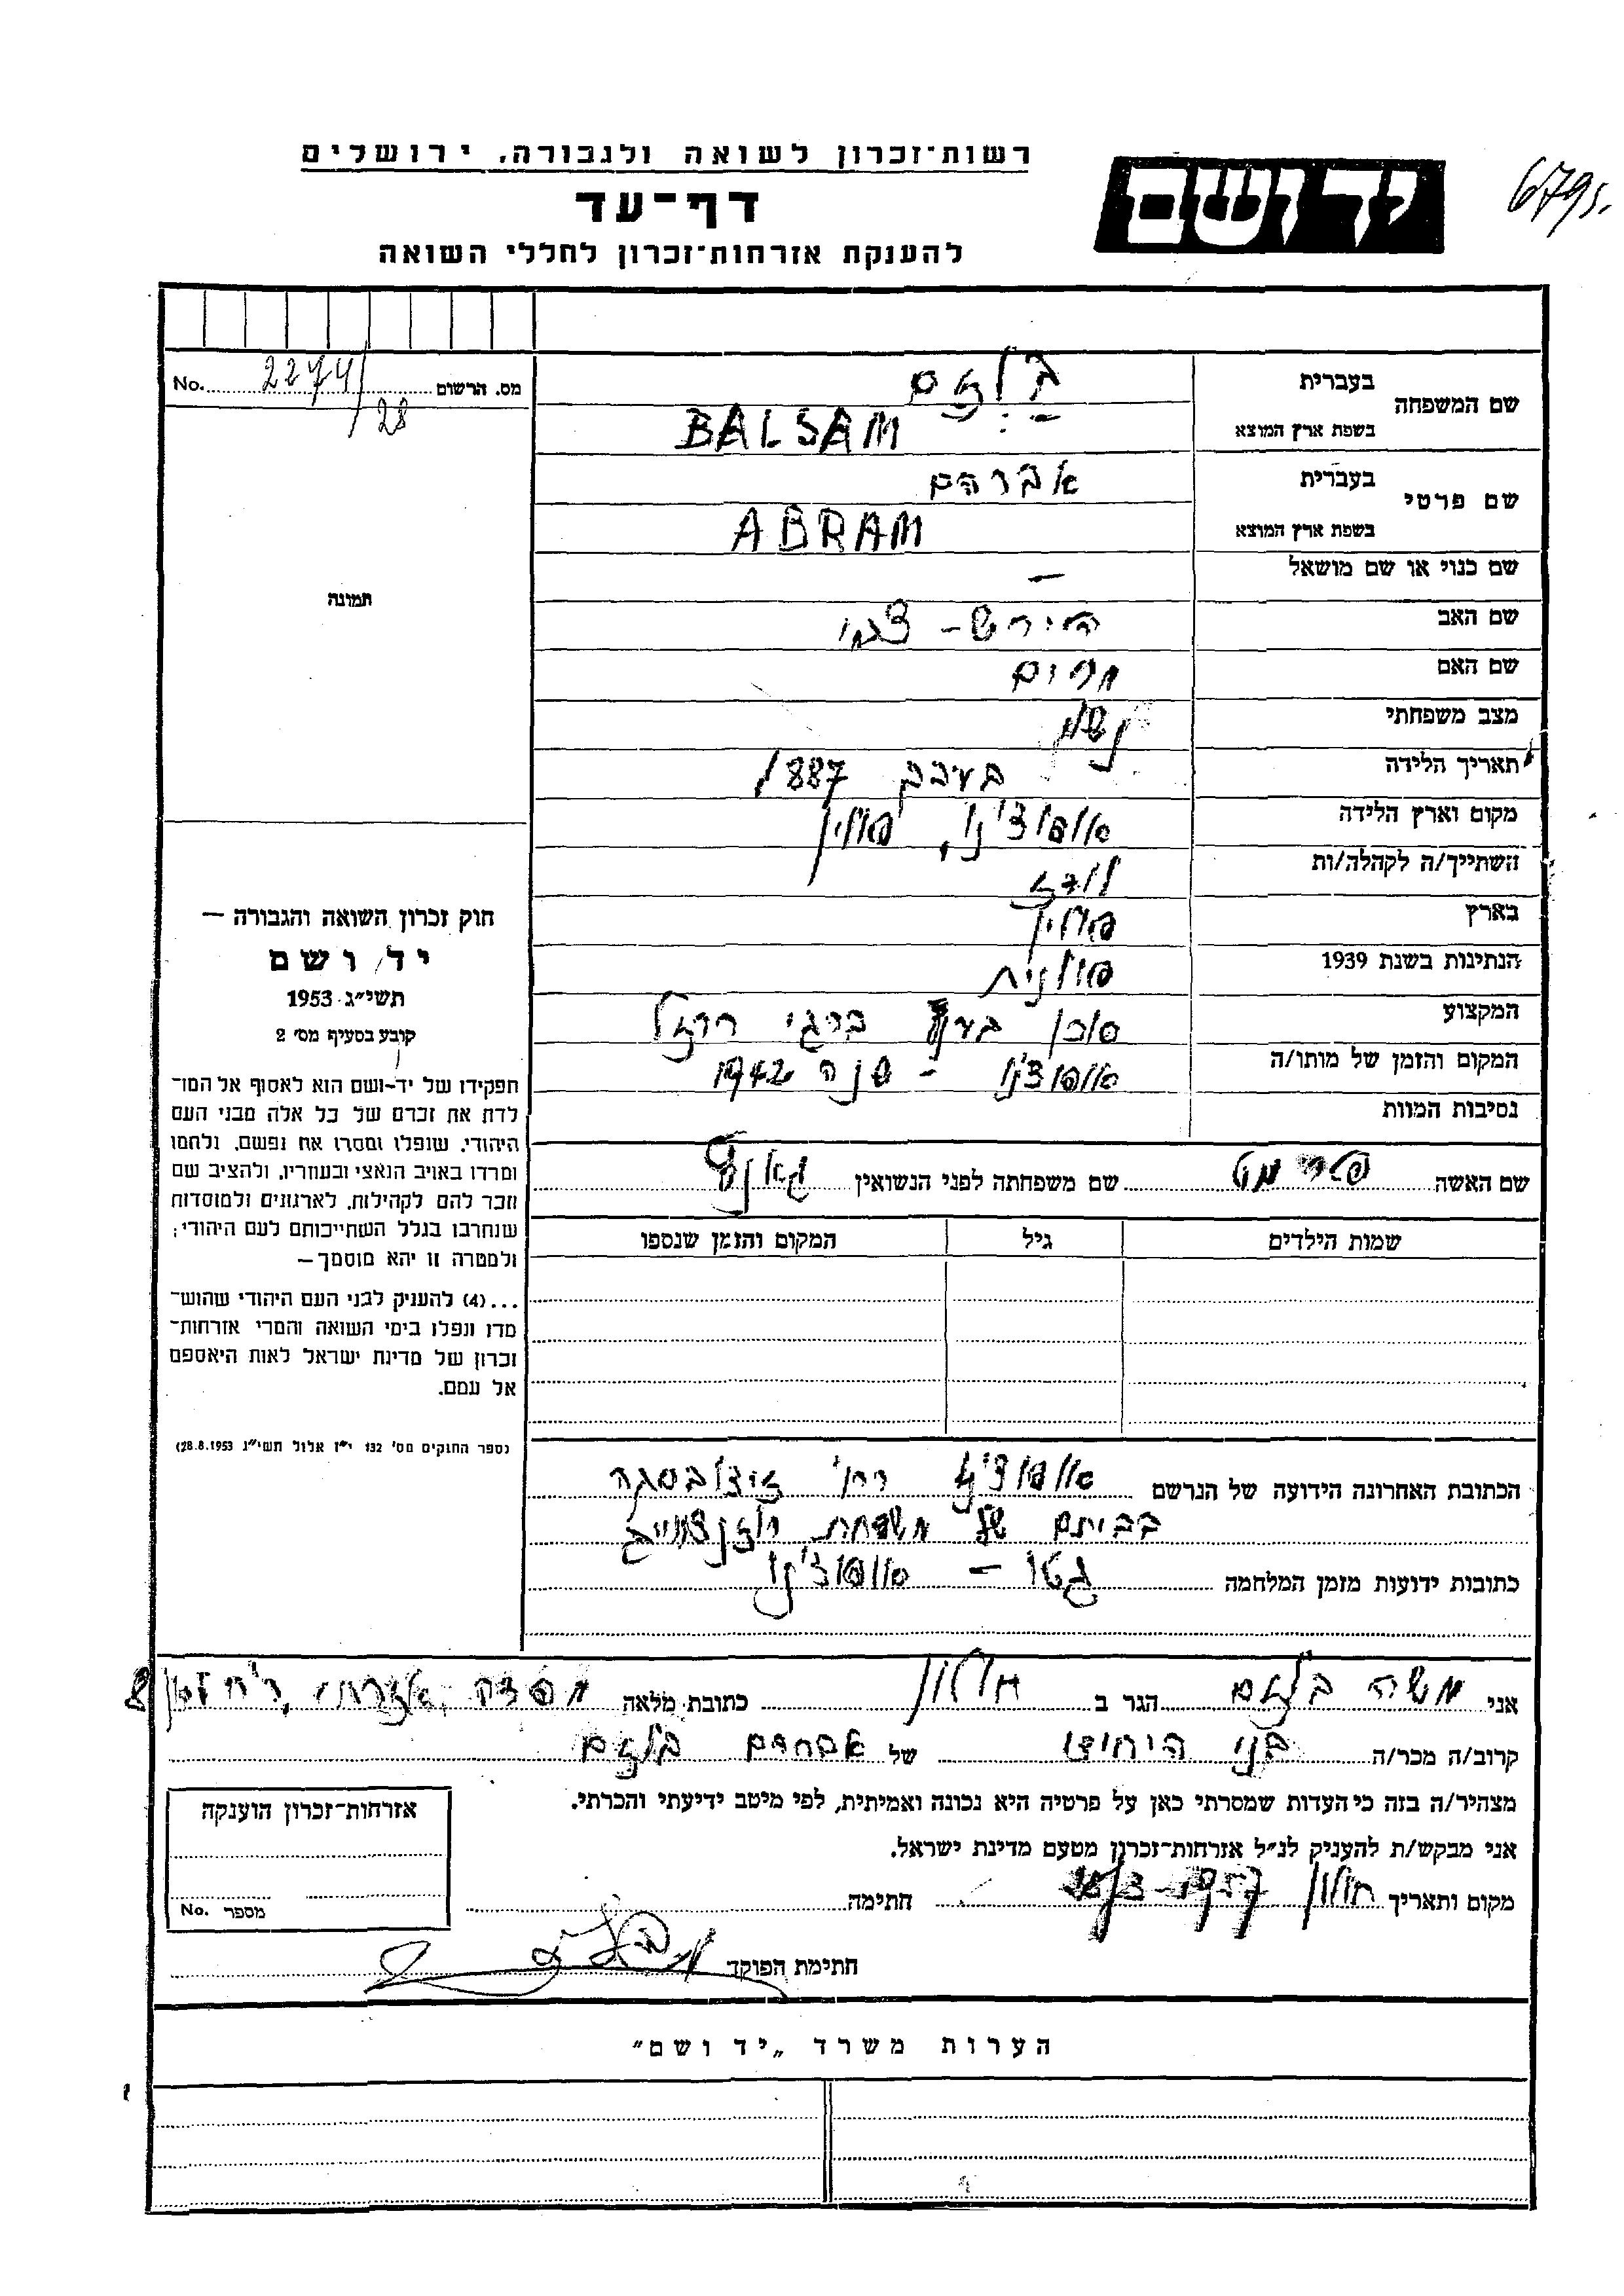 רשות־זכרון לשואה ולגבורה, ירושלים
דף־עד
להענקת אזרחות־זכרון לחללי השואה
יד ושם
6795.
No. 2274/28 מס. הרשום
שם המשפחה בעברית בלזם
בשפת ארץ המוצא BALSAM
שם פרטי בעברית אברהם
בשפת ארץ המוצא ABRAM
שם כנוי או שם מושאל –
שם האב הירש - צבי
שם האם מרים
מצב משפחתי נשוי
תאריך הלידה בערב 1887
מקום וארץ הלידה אופוצ'נו, פולין
השתייך/ה לקהלה/ות לודז
בארץ פולין
הנתינות בשנת 1939 פולנית
המקצוע סוכן בענף ברגי ברזל
המקום והזמן של מותו/ה אופוצ'נו - שנה 1942
נסיבות המוות
תמונה
חוק זכרון השואה והגבורה —
יד ושם
תשי״ג 1953
קובע בסעיף מס׳ 2
תפקידו של יד-ושם הוא לאסוף אל המו־
לדת את זכרם של כל אלה מבני העם
היהודי, שנפלו ומסרו את נפשם, נלחמו
ומרדו באויב הנאצי ובעוזריו, ולהציב שם
וזכר להם לקהילות, לארגונים ולמוסדות
שנחרבו בגלל השתייכותם לעם היהודי;
ולמטרה זו יהא מוסמך—
...(4) להעניק לבני העם היהודי שהוש־
מדו ונפלו בימי השואה והמרי אזרחות־
זכרון של מדינת ישראל לאות היאספם
אל עמם.
(ספר החוקים מס׳ 132 י״ז אלול תשי״ג 28.8.1953)
שם האשה שם משפחתה לפני הנשואין
שמות הילדים גיל המקום והזמן שנספו
הכתובת האחרונה הידועה של הנרשם אופוצ'נו רח'
בביתם של משפחת
כתובות ידועות מזמן המלחמה גטו - אופוצ'נו
אני משה בלזם הגר ב חולון כתובת מלאה 8
קרוב/ה מכר/ה בנו היחידי של אברהם בלזם
מצהיר/ה בזה כי העדות שמסרתי כאן על פרטיה היא נכונה ואמיתית, לפי מיטב ידיעתי והכרתי.
אני מבקש/ת להעניק לנ״ל אזרחות־זכרון מטעם מדינת ישראל.
מקום ותאריך חולון חתימה
חתימת הפוקד
אזרחות־זכרון הוענקה
מספר No.
הערות משרד „יד ושם״